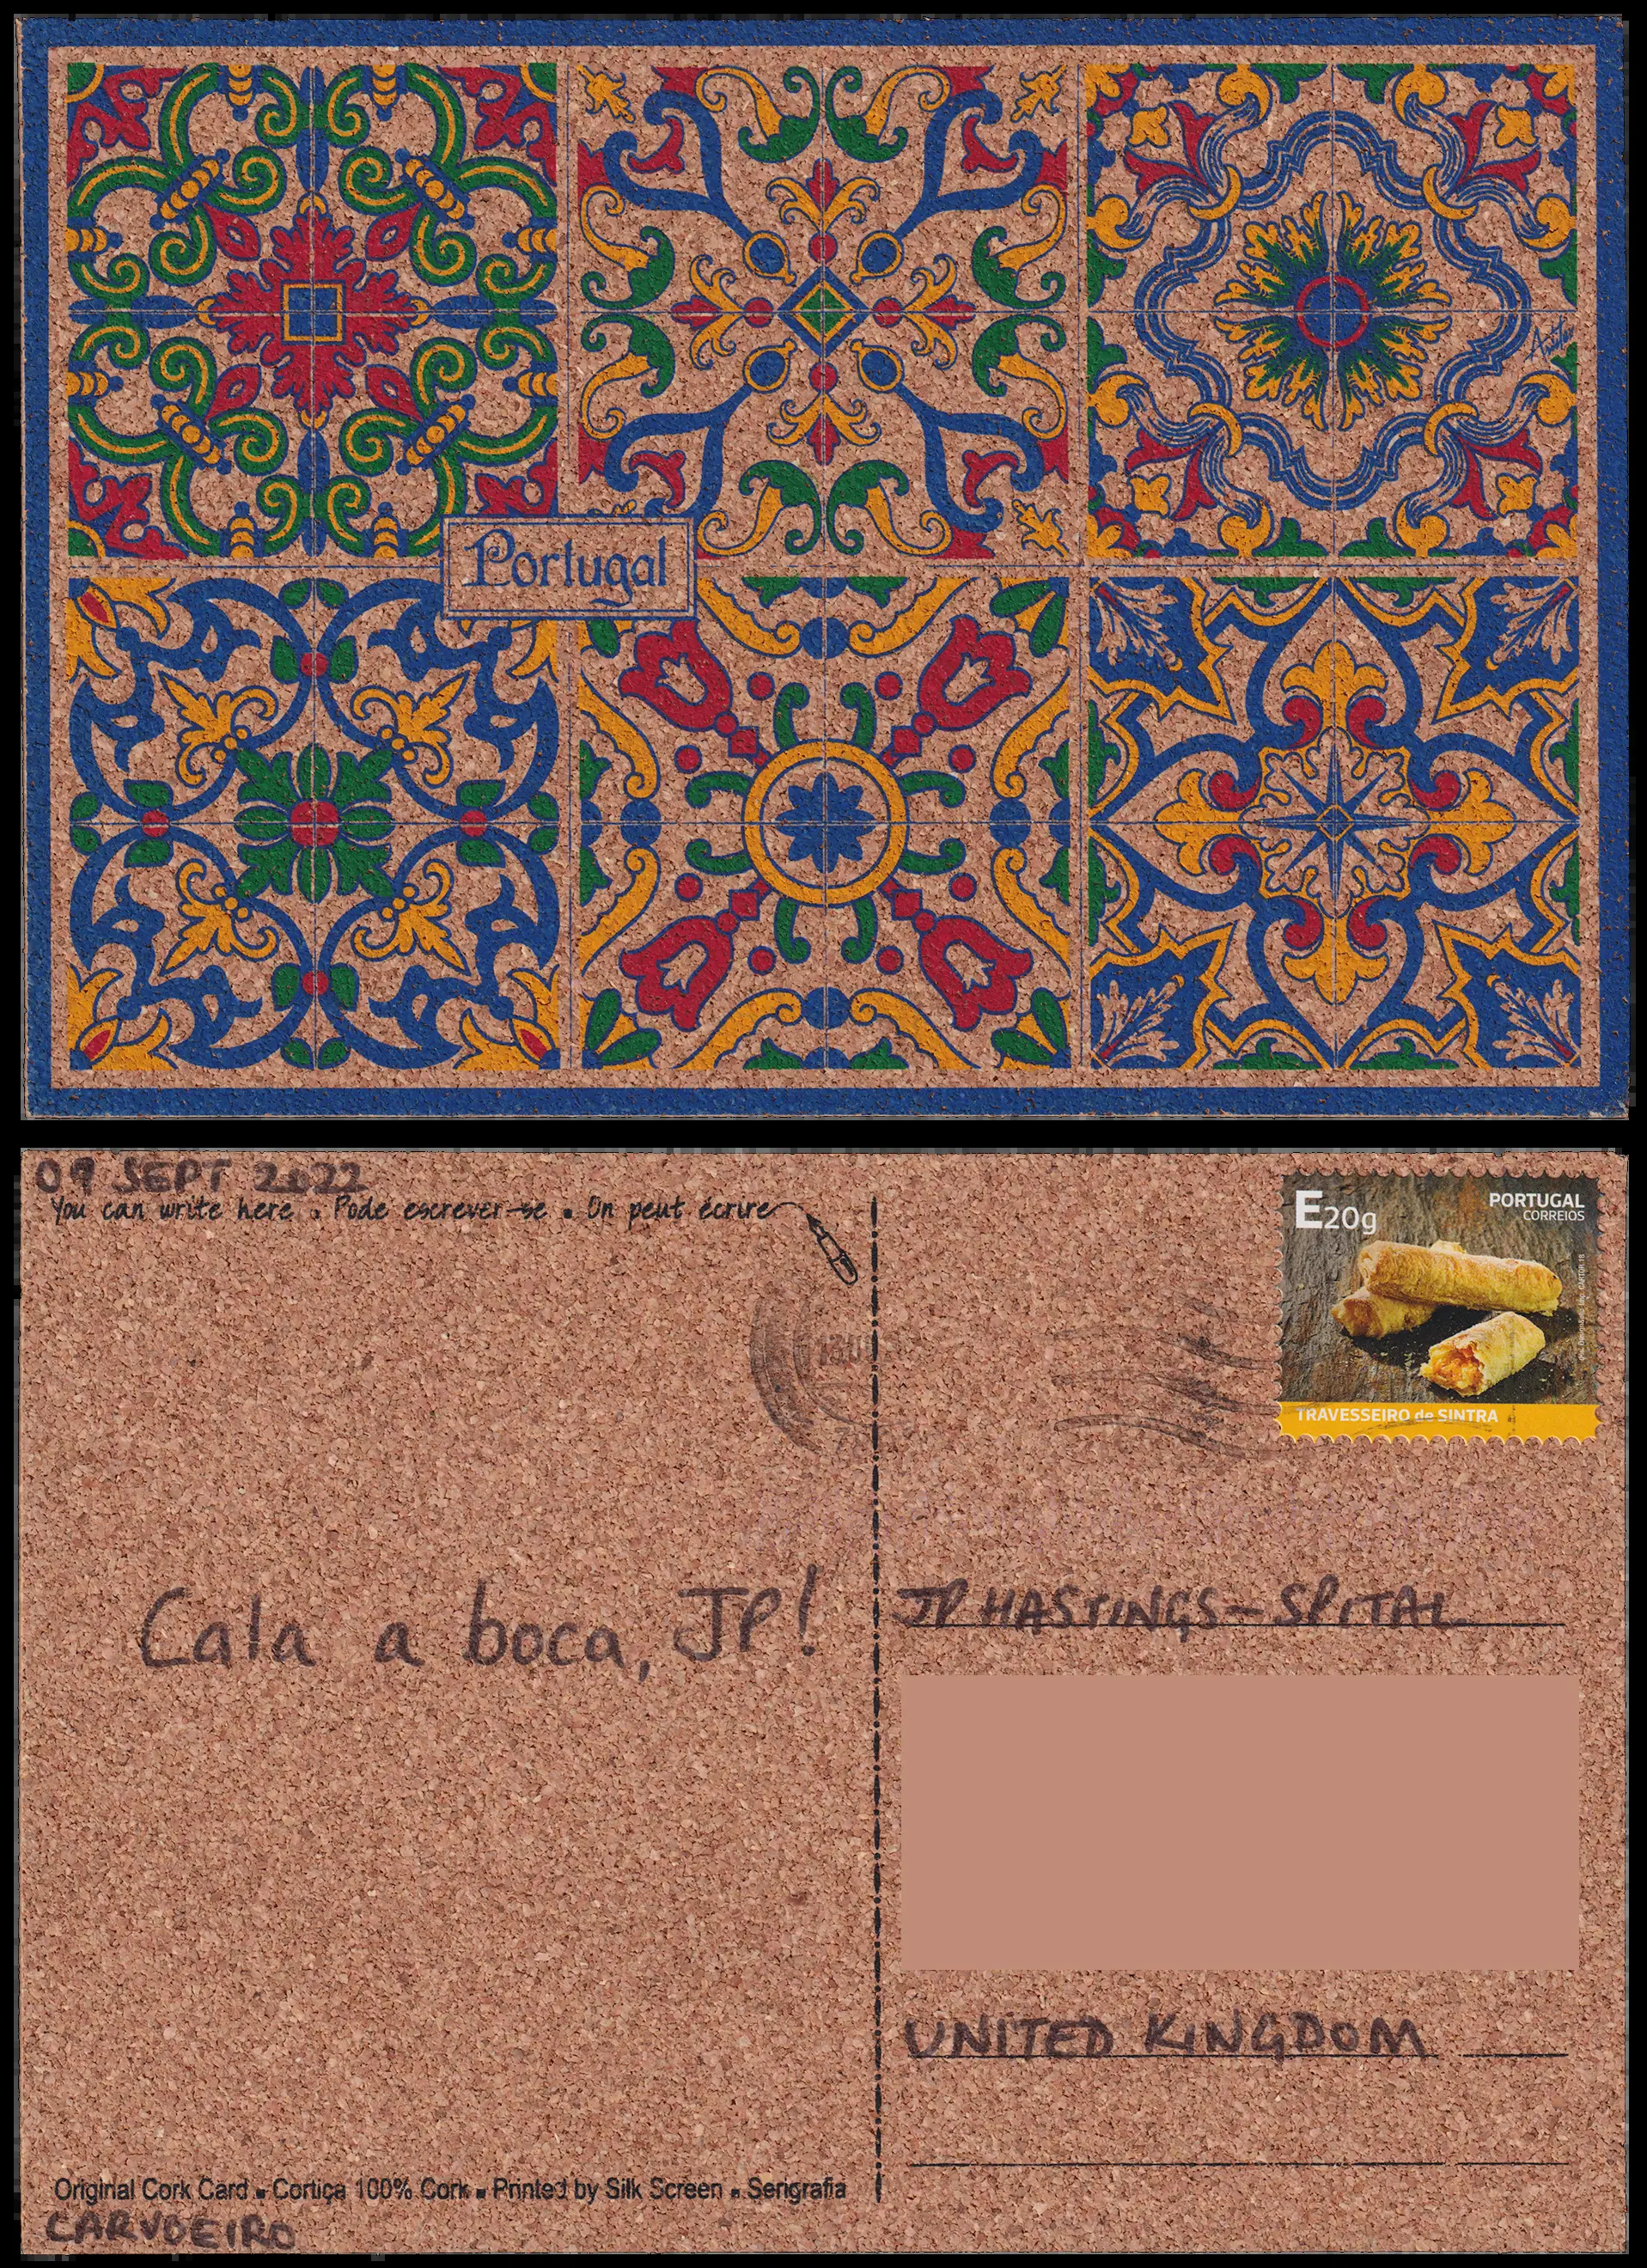 Portugal
09 SEPT 2022
You can write here . Pode escrever-se . On peut écrire
E20g
PORTUGAL
CORREIOS
TRAVESSEIRO de SINTRA
Cala a boca, JP!
JP HASTINGS-SPITAL
UNITED KINGDOM
Original Cork Card . Cortiça 100% Cork . Printed by Silk Screen . Serigrafia
CARVOEIRO